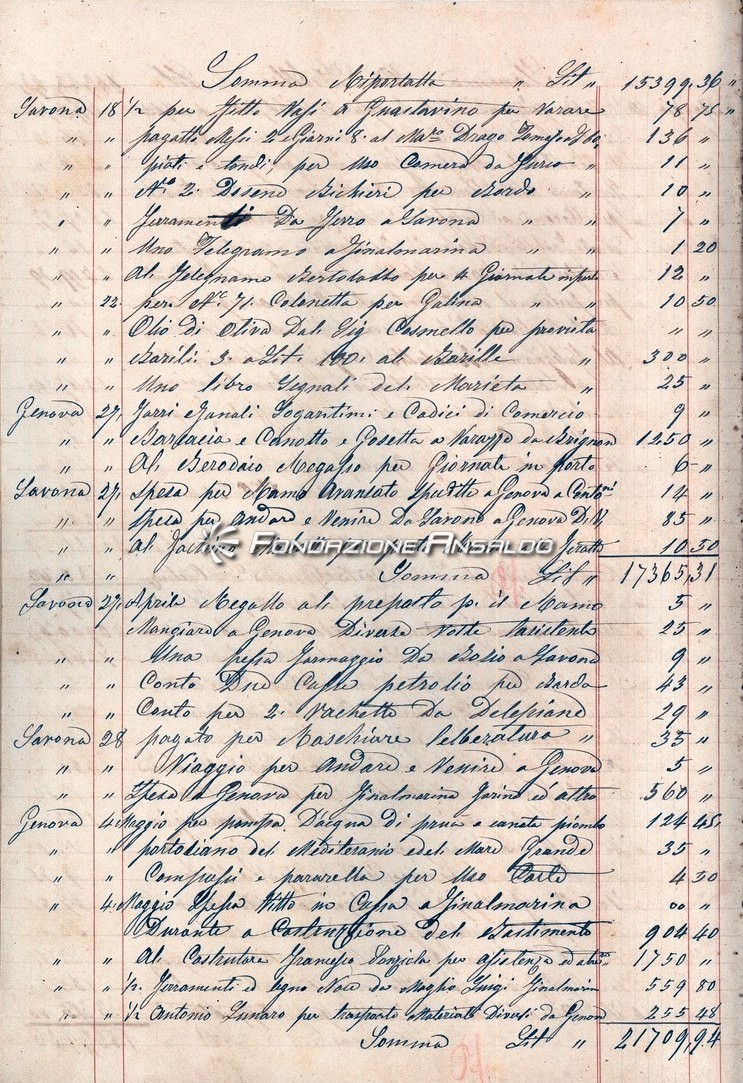 Somma Riportatta " Lit " 15399,36 "
Savona 18 1/2 per fitto Vasi a Guastavino per Varare 78 75 "
" " pagatto Mesi 2 e Giorni 8 al Drago 136 "
" " piati e tondi, per Uso Camera da 11 "
" " N° 2 Dosene Bichieri per Bordo " 10 "
" " Ferramenti Da Ferro a Savona " 7 "
" " Uno Telegramo a Finalmarina " " 1 20
" " Al Felegnamo per 4 Giornate in porto 12 "
" 22 per N° 7 Colonetta per Galina " " 10 50
" " Olio di Oliva Dal Sig Cosmello per provista " "
" " Barili 3 a Lit 100 al Barille " 300 "
" " Uno libro Segnali del Marieta " 25 "
Genova 27 Farri Fanali Logaritimi e Codici di Comercio 9 "
" " Barcacia e Canotto e a Varazze da 1250 "
" " Al Megasso per Giornate in porto 6 "
Savona 27 Spesa per speditte a Genova a 14 "
" " Spesa per Andare e Venire Da Savona a Genova 85 "
" " Al 10 50
FONDAZIONE ANSALDO
" " Somma Lit " 17365,31
Savona 27 Aprile Regallo al preposto p. il 5 "
Mangiare a Genova Diverse Volte 25 "
" " Una pessa formaggio Da Bosio a Savona 9 "
" " Conto Due Casse petrolio per Bordo 43 "
" " Conto per 2 Vachette Da Delepiane 29 "
Savona 28 pagato per Raschiare l'alberatura " 35 "
" " Viaggio per Andare e Venire a Genova 5 "
" " Spesa a Genova per Finalmarina farina ed altro 560 "
Genova 4 Maggio per pompa D'acqua di prua e canale piombo 124 45
" " portolano del Mediteranio e del Mare Grande 35 "
" " Compassi e pararella per Uso Carte 4 50
" 4 Maggio Spesa Vitto in Cassa a Finalmarina 00 "
Durante a Costruzione del Bastimento 904 40
" " Al Costrutore Francesco per asistenza ed altro 1750 "
" " 1/2 Ferramenti ed legno Noce da Maglio Luigi Finalmarin 559 80
" " 1/2 Antonio Lunaro per trasporto Materiale Diversi da Genova 255 48
Somma Lit " 21709,94